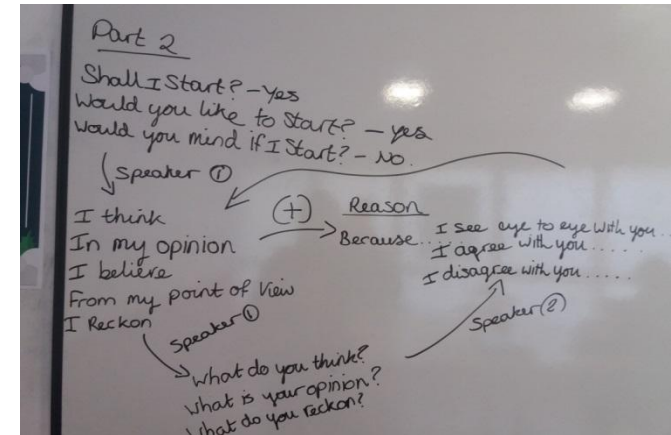 Part 2
Shall I Start? - Yes
Would you like to Start? - yes
Would you mind if I Start? - No.
Speaker ①
I think
In my opinion
I believe
From my point of View
I Reckon
(+)
Reason
Because...
I see eye to eye with you...
I agree with you.....
I disagree with you.....
Speaker ①
Speaker (2)
What do you think?
What is your opinion?
What do you reckon?